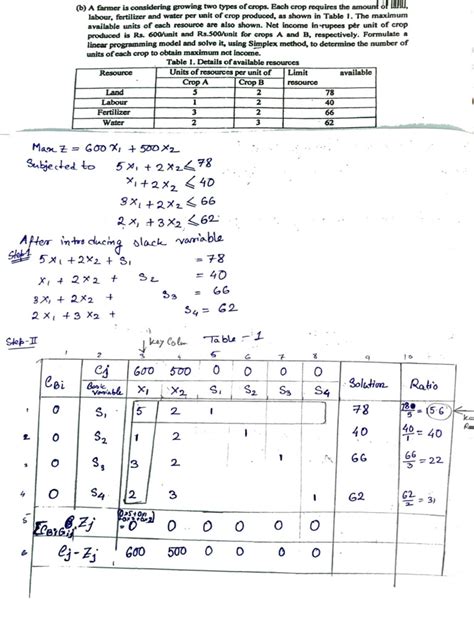 (b) A farmer is considering growing two types of crops. Each crop requires the amount of
labour, fertilizer and water per unit of crop produced, as shown in Table 1. The maximum
available units of each resource are also shown. Net income in rupees per unit of crop
produced is Rs. 600/unit and Rs.500/unit for crops A and B, respectively. Formulate a
linear programming model and solve it, using Simplex method, to determine the number of
units of each crop to obtain maximum net income.
Table 1. Details of available resources
Resource Units of resources per unit of Limit available
Crop A Crop B resource
Land 5 2 78
Labour 1 2 40
Fertilizer 3 2 66
Water 2 3 62
Max Z = 600 X1 + 500 X2
Subjected to 5X1 + 2X2 ≤ 78
X1 + 2X2 ≤ 40
3X1 + 2X2 ≤ 66
2X1 + 3X2 ≤ 62
After introducing slack variable
Step-I 5X1 + 2X2 + S1 = 78
X1 + 2X2 + S2 = 40
3X1 + 2X2 + S3 = 66
2X1 + 3X2 + S4 = 62
Step-II ↓ Key Colm Table - 1
1 2 3 4 5 6 7 8 9 10
CBi Cj 600 500 0 0 0 0 Solution Ratio
Basic variable X1 X2 S1 S2 S3 S4
1 0 S1 5 2 1 78 = (5.6)
2 0 S2 1 2 1 40 40/1 = 40
3 0 S3 3 2 1 66 66/3 = 22
4 0 S4 2 3 1 62 62/2 = 31
5 Zj = 0 0 0 0 0 0
6 Cj - Zj 600 500 0 0 0 0